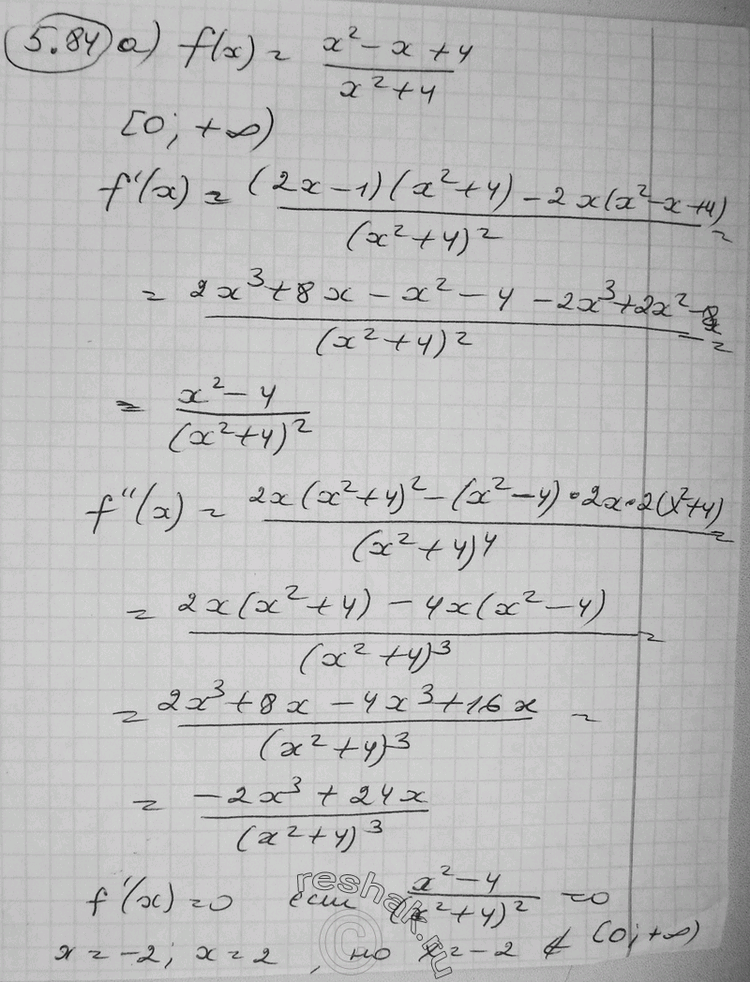 5.84 а) f(x) = (x² - x + 4)/(x² + 4)
[0; +∞)
f'(x) = ((2x - 1)(x² + 4) - 2x(x² - x + 4))/(x² + 4)² =
= (2x³ + 8x - x² - 4 - 2x³ + 2x² - 8x)/(x² + 4)² =
= (x² - 4)/(x² + 4)²
f''(x) = (2x(x² + 4)² - (x² - 4)·2x·2(x² + 4))/(x² + 4)⁴ =
= (2x(x² + 4) - 4x(x² - 4))/(x² + 4)³ =
= (2x³ + 8x - 4x³ + 16x)/(x² + 4)³ =
= (-2x³ + 24x)/(x² + 4)³
f'(x) = 0 если (x² - 4)/(x² + 4)² = 0
x = -2; x = 2, но x = -2 ∉ (0; +∞)
reshak.ru